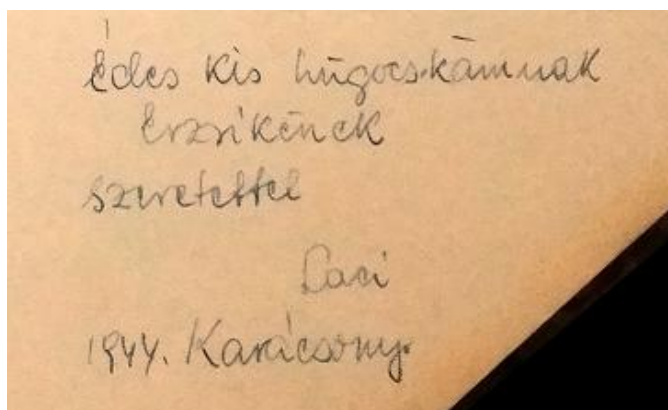 Édes kis húgocskámnak
Erzsikének
szeretettel
Laci
1944. Karácsony.